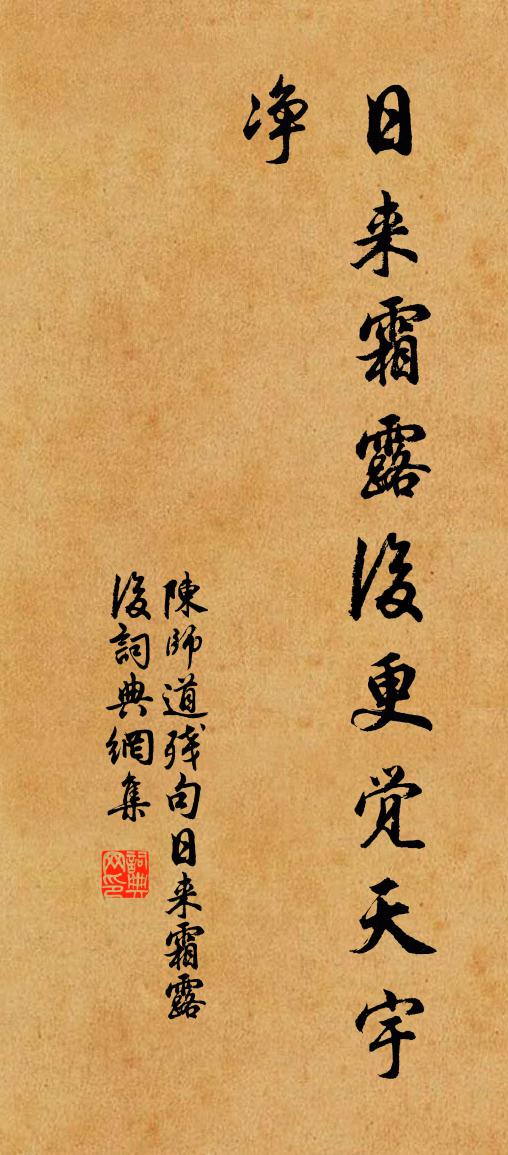 日来霜露後更觉天宇
净
陳師道殘句日来霜露
後詞典網集
詞典网印